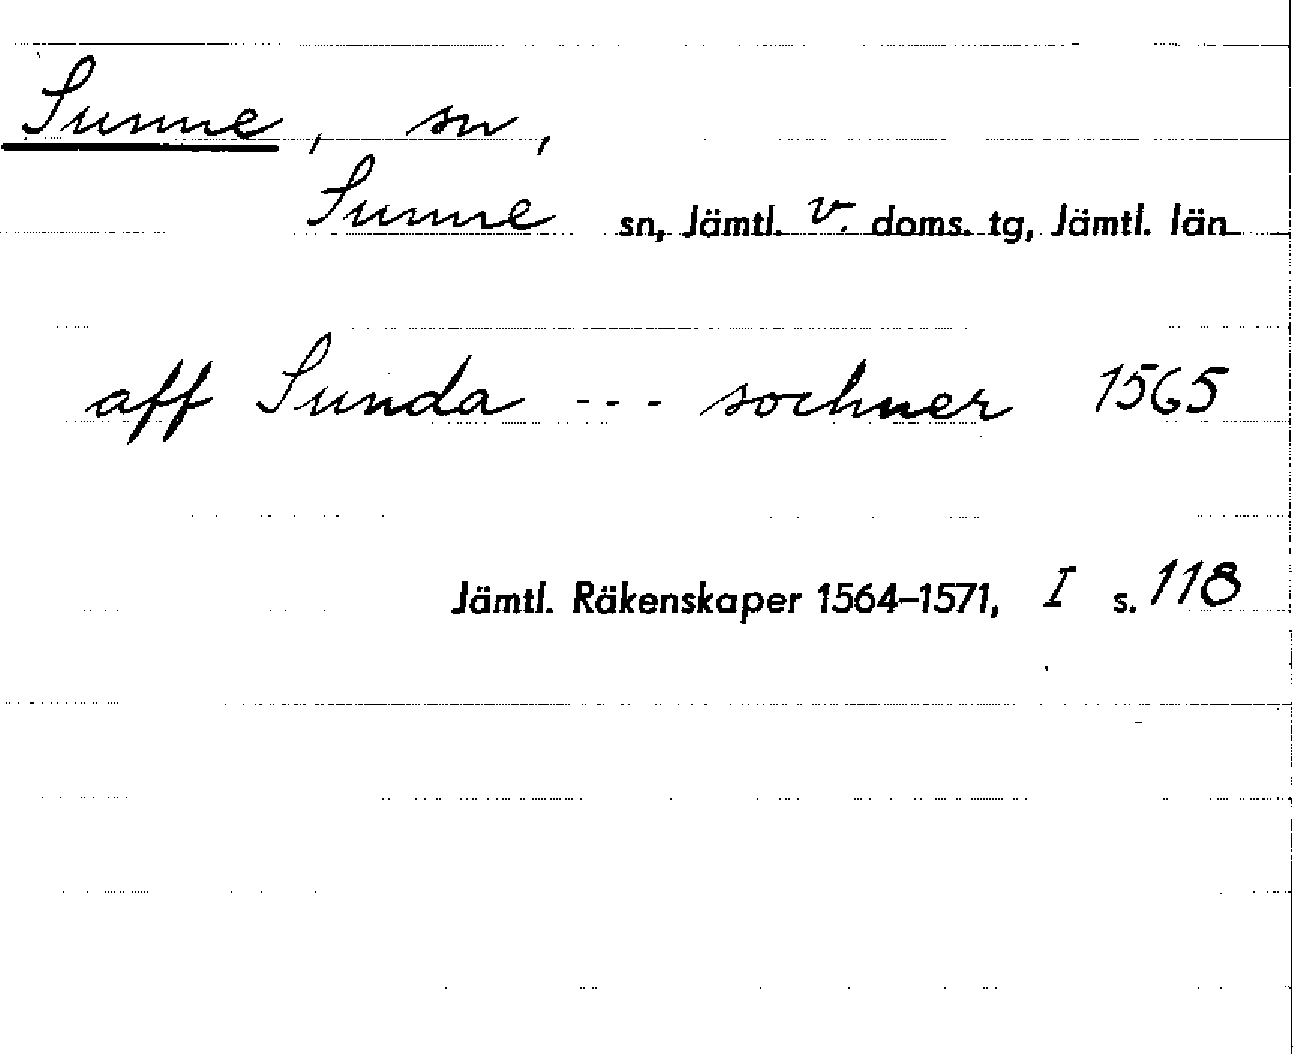 Sunne, sn,
Sunne sn, Jämtl. v. doms. tg, Jämtl. län
aff Sunda --- sochner 1565
Jämtl. Räkenskaper 1564–1571, I s. 118